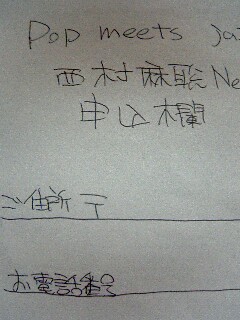 Pop meets ja
西村麻聡 Ne
申込欄
ご住所 〒
お電話番号